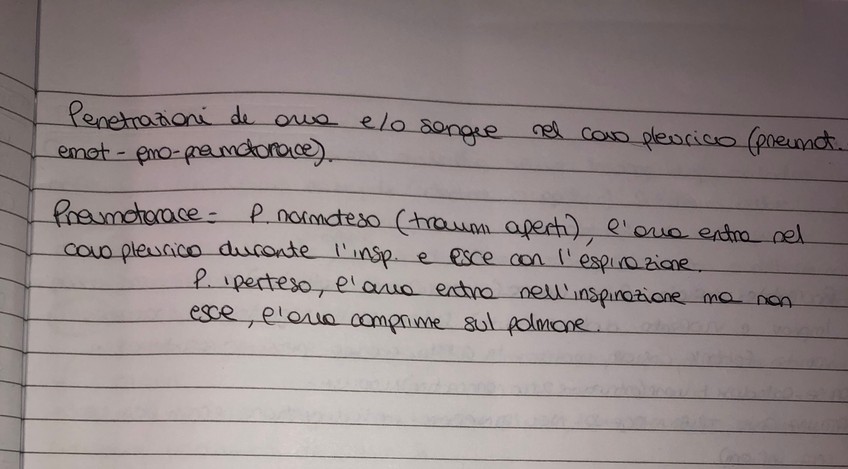 Penetrazioni de aria e/o sangue nel cavo pleurico (pneumot.
emot - emo-pneumotorace).
Pneumotorace = P. normoteso (traumi aperti), l'aria entra nel
cavo pleurico durante l'insp. e esce con l'espirazione.
P. iperteso, l'aria entra nell'inspirazione ma non
esce, l'aria comprime sul polmone.